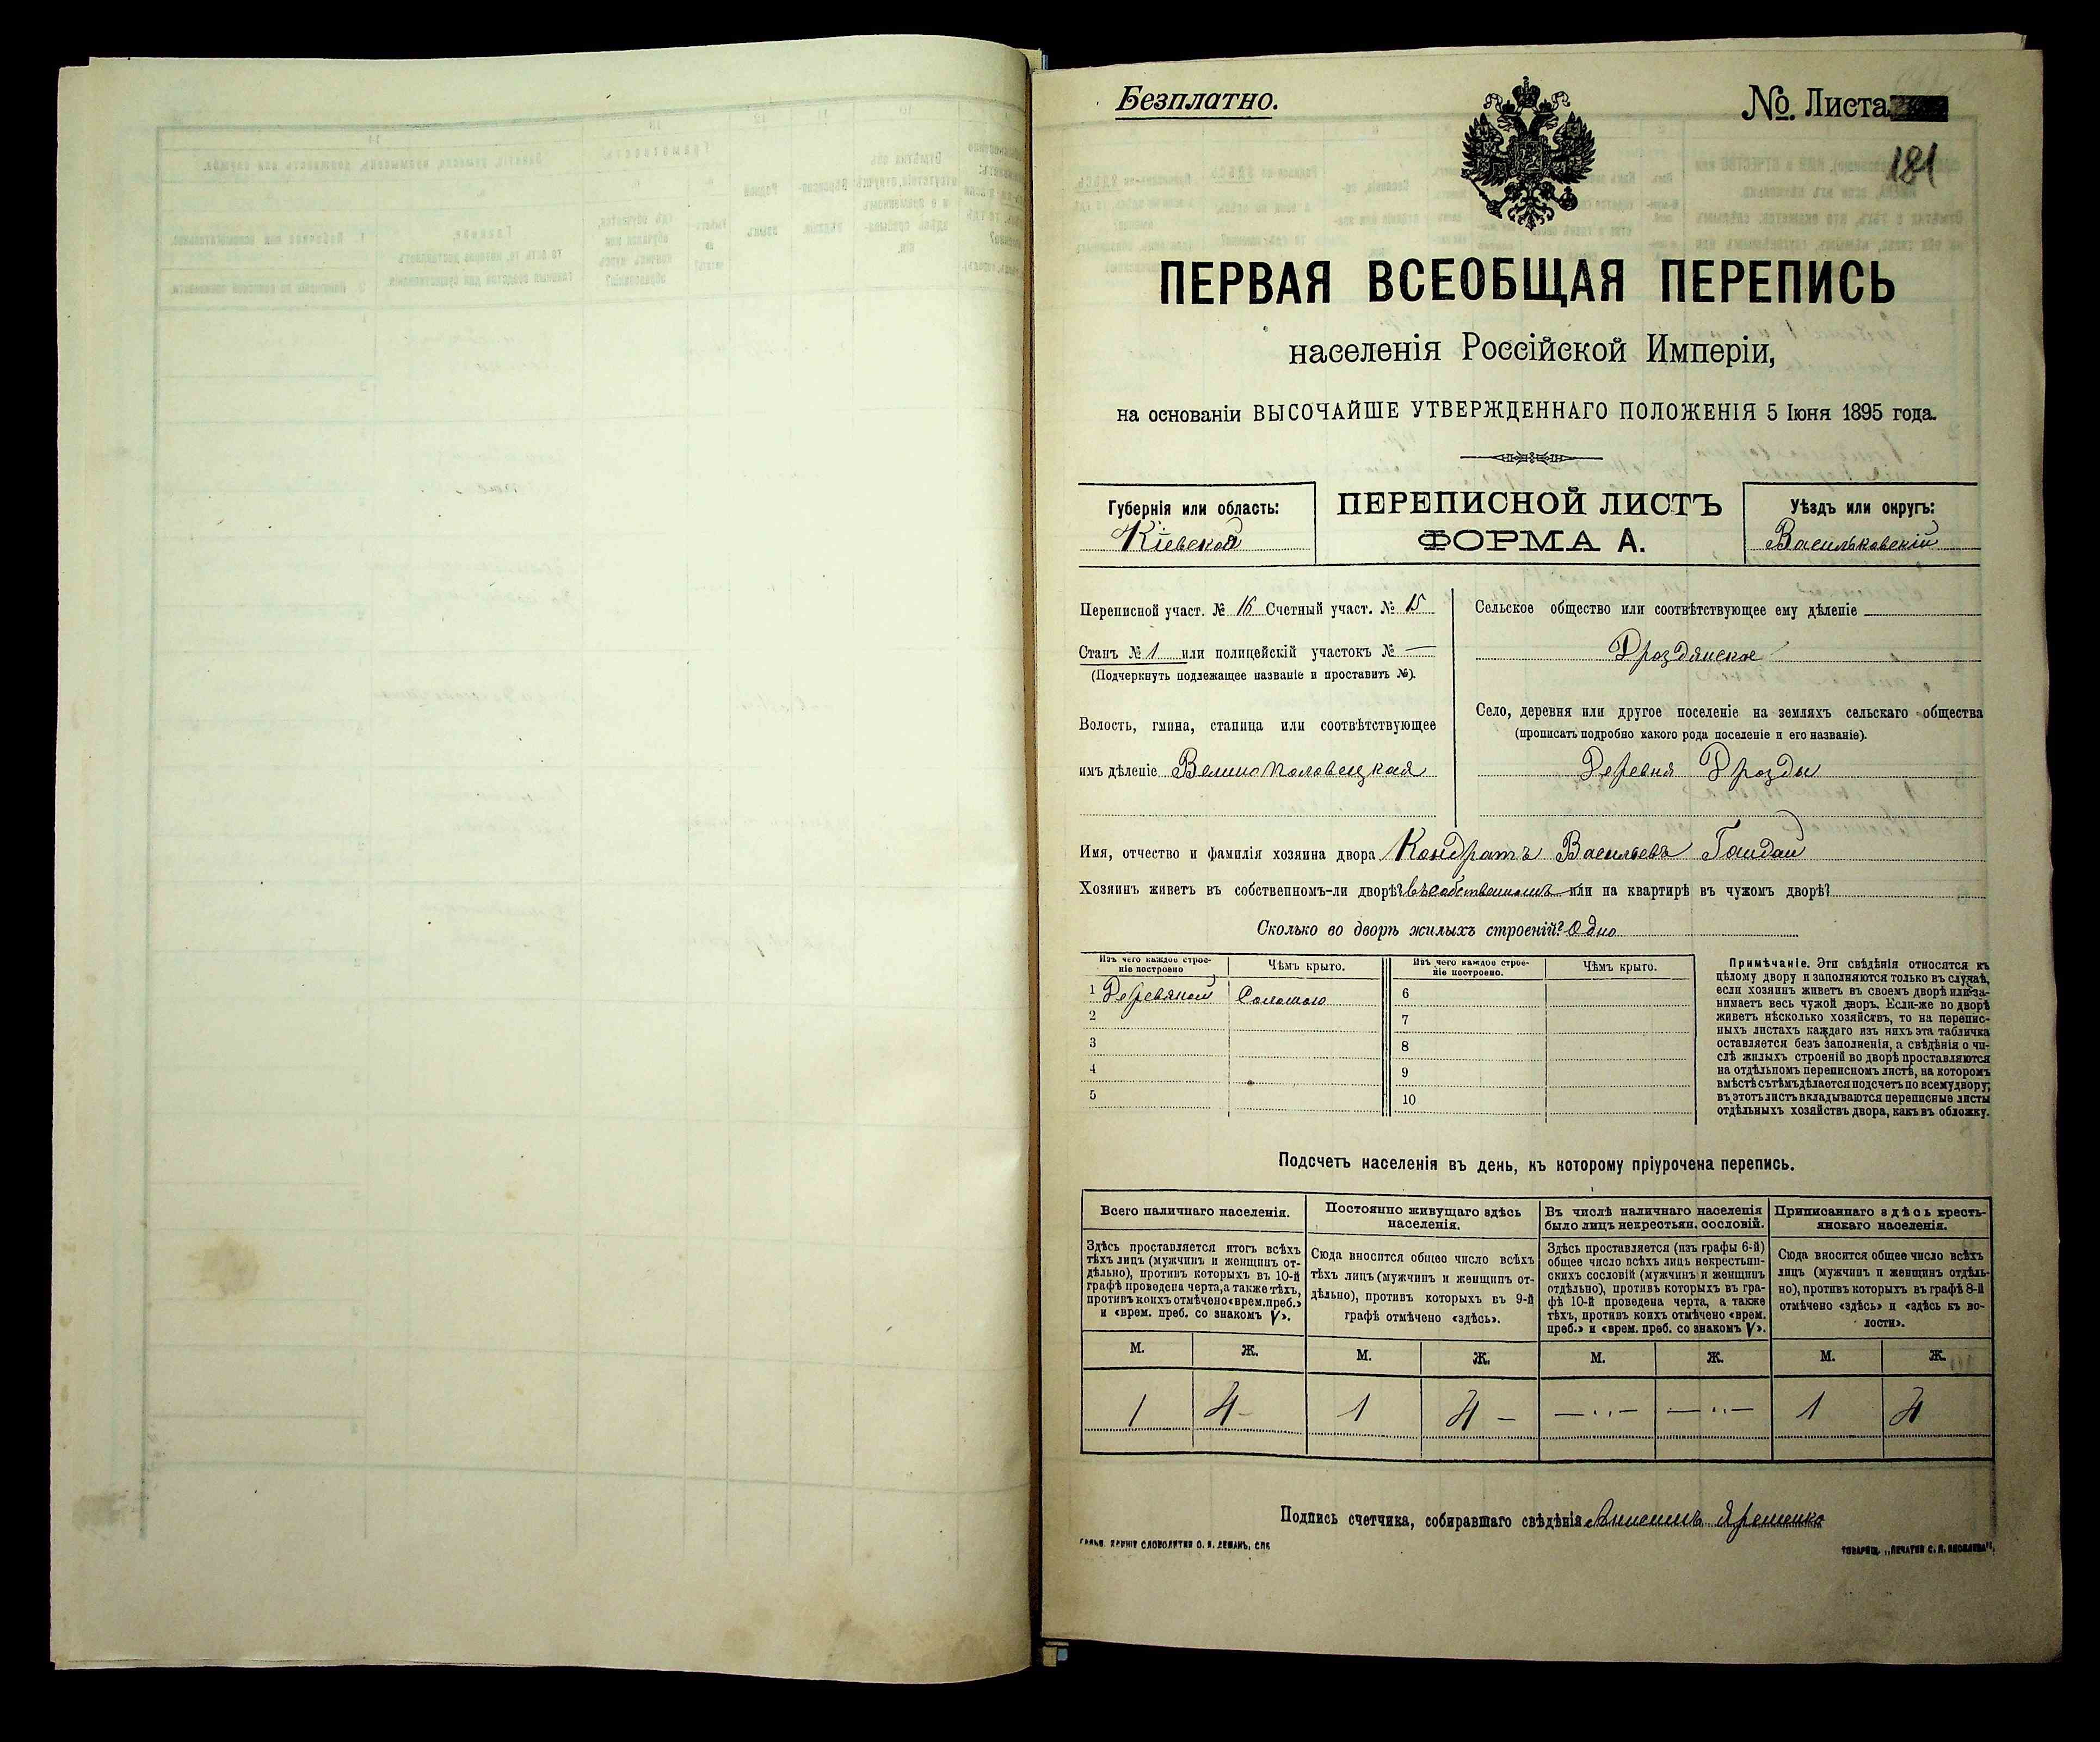 Безплатно.
№. Листа
181
ПЕРВАЯ ВСЕОБЩАЯ ПЕРЕПИСЬ
населенія Россійской Имперіи,
на основаніи ВЫСОЧАЙШЕ УТВЕРЖДЕННАГО ПОЛОЖЕНІЯ 5 Іюня 1895 года.
Губернія или область:
Кіевская
ПЕРЕПИСНОЙ ЛИСТЪ
ФОРМА А.
Уѣздъ или округъ:
Васильковскій
Переписной участ. № 16 Счетный участ. № 15
Станъ № 1 или полицейскій участокъ № —
(Подчеркнуть подлежащее названіе и проставить №).
Волость, гмина, станица или соотвѣтствующее
имъ дѣленіе Великополовецкая
Сельское общество или соотвѣтствующее ему дѣленіе
Дроздянское
Село, деревня или другое поселеніе на земляхъ сельскаго общества
(прописать подробно какого рода поселеніе и его названіе).
Деревня Дрозды
Имя, отчество и фамилія хозяина двора Кондратъ Васильевъ Гайдай
Хозяинъ живетъ въ собственномъ-ли дворѣ? въ собственномъ или на квартирѣ въ чужомъ дворѣ?
Сколько во дворѣ жилыхъ строеній? Одно
Изъ чего каждое строе-
ніе построено
Чѣмъ крыто.
Изъ чего каждое строе-
ніе построено.
Чѣмъ крыто.
1 Деревяной Соломою
2
3
4
5
6
7
8
9
10
Примѣчаніе. Эти свѣдѣнія относятся къ
цѣлому двору и заполняются только въ случаѣ,
если хозяинъ живетъ въ своемъ дворѣ или за-
нимаетъ весь чужой дворъ. Если-же во дворѣ
живетъ нѣсколько хозяйствъ, то на перепис-
ныхъ листахъ каждаго изъ нихъ эта табличка
оставляется безъ заполненія, а свѣдѣнія о чи-
слѣ жилыхъ строеній во дворѣ проставляются
на отдѣльномъ переписномъ листѣ, на которомъ
вмѣстѣ съ тѣмъ дѣлается подсчетъ по всему двору;
въ этотъ листъ вкладываются переписные листы
отдѣльныхъ хозяйствъ двора, какъ въ обложку.
Подсчетъ населенія въ день, къ которому пріурочена перепись.
Всего наличнаго населенія.
Постоянно живущаго здѣсь
населенія.
Въ числѣ наличнаго населенія
было лицъ некрестьян. сословій.
Приписаннаго здѣсь кресть-
янскаго населенія.
Здѣсь проставляется итогъ всѣхъ
тѣхъ лицъ (мужчинъ и женщинъ от-
дѣльно), противъ которыхъ въ 10-й
графѣ проведена черта, а также тѣхъ,
противъ коихъ отмѣчено «врем. преб.»
и «врем. преб. со знакомъ V».
Сюда вносится общее число всѣхъ
тѣхъ лицъ (мужчинъ и женщинъ от-
дѣльно), противъ которыхъ въ 9-й
графѣ отмѣчено «здѣсь».
Здѣсь проставляется (изъ графы 6-й)
общее число всѣхъ лицъ некрестьян-
скихъ сословій (мужчинъ и женщинъ
отдѣльно), противъ которыхъ въ гра-
фѣ 10-й проведена черта, а также
тѣхъ, противъ коихъ отмѣчено «врем.
преб.» и «врем. преб. со знакомъ V».
Сюда вносится общее число всѣхъ
лицъ (мужчинъ и женщинъ отдѣль-
но), противъ которыхъ въ графѣ 8-й
отмѣчено «здѣсь» и «здѣсь къ во-
лости».
М. Ж. М. Ж. М. Ж. М. Ж.
1 4 - 1 4 - — „ — — „ — 1 4
Подпись счетчика, собиравшаго свѣдѣнія Яременко
СЛОВОЛИТНИ О. И. ЛЕМАНЪ, СПБ
ТОВАРИЩ. „ПЕЧАТНЯ С. П. ЯКОВЛЕВА".